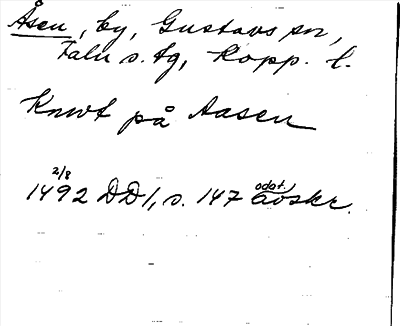 Åsen, by, Gustavs sn,
Falu s. tg, Kopp. l.
Knwt på Aasen
2/8
1492 DD 1, s. 147 odat. avskr.